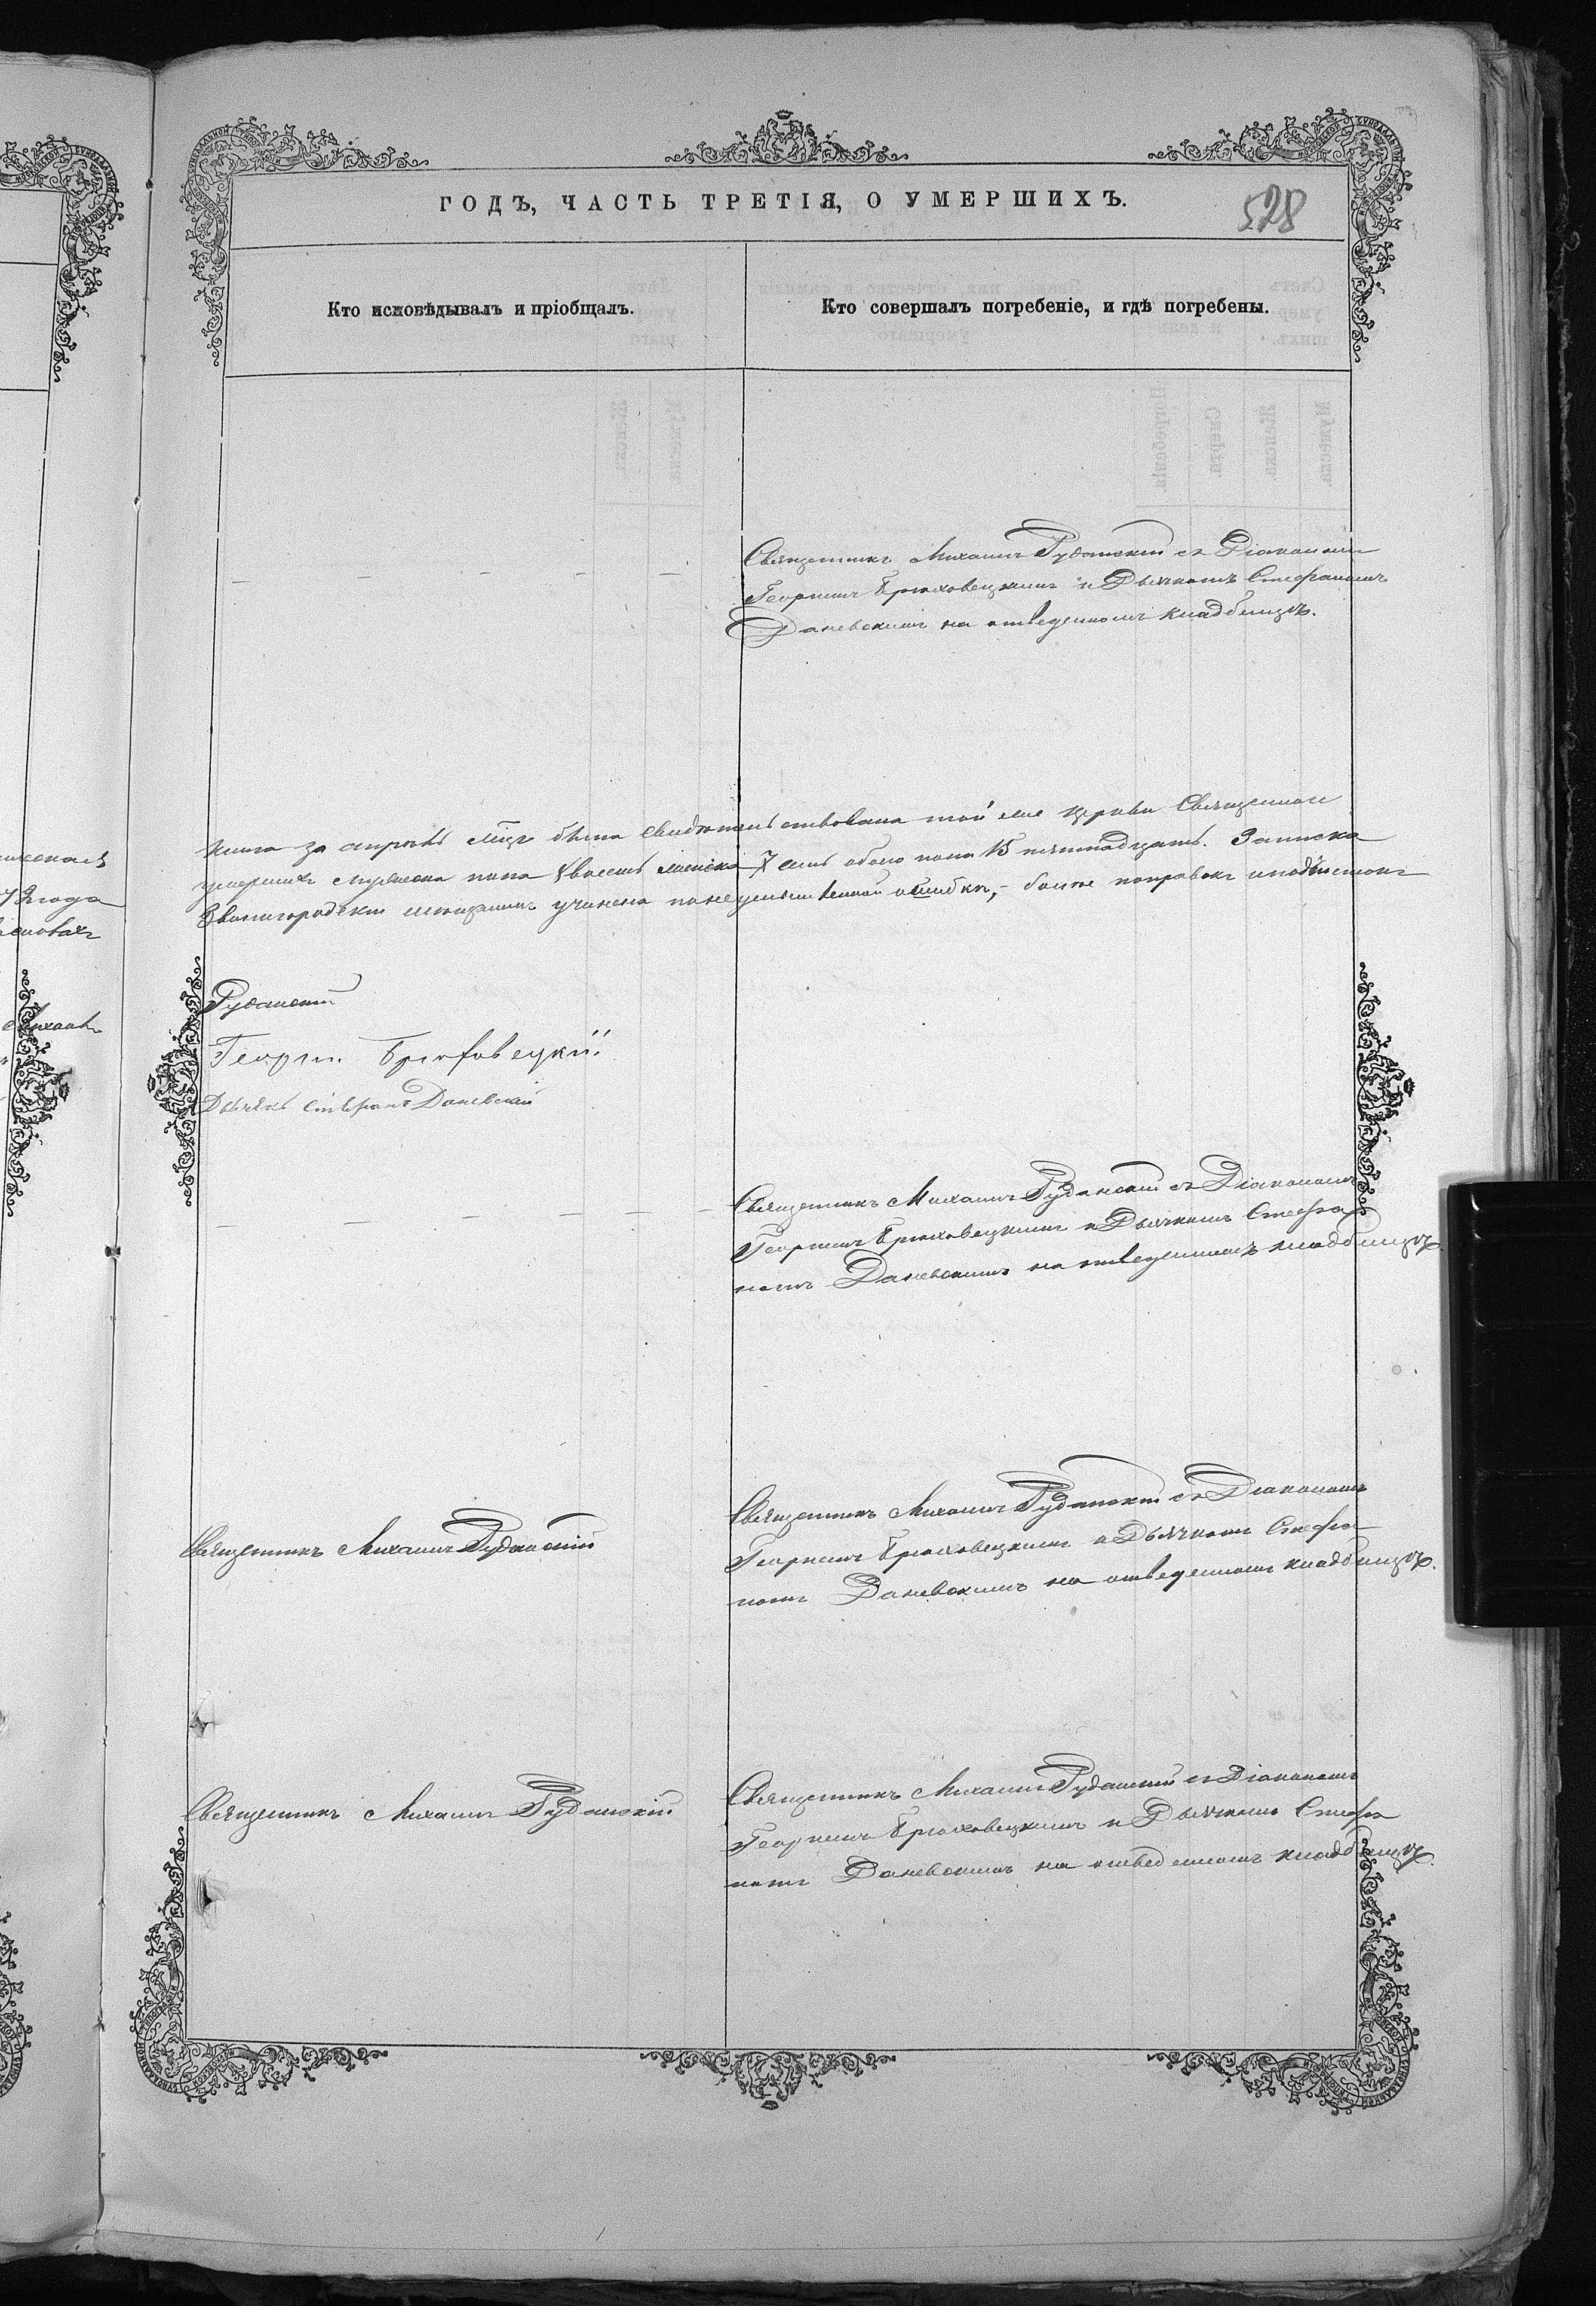 ГОДЪ, ЧАСТЬ ТРЕТІЯ, О УМЕРШИХЪ.
528
Кто исповѣдывалъ и пріобщалъ.
Кто совершалъ погребеніе, и гдѣ погребены.
Священникъ Михаилъ Руданскій съ Діакономъ
Георгіемъ Брюховецкимъ и Дьячкомъ Стефаномъ
Даневскимъ на отведенномъ кладбищѣ.
книга за апрѣль мѣцъ была свидѣтельствована той же Церкви Священнои
умершихъ мужеска пола 8 восемь женска 7 семь обоего пола 15 пятнадцать. Записка
Звенигородскій мещанинъ учинена по неумышленной ошибки, – болѣе поправокъ и подчистокъ
Руданскій
Георгій Брюховецкій
Дьячекъ Стефанъ Даневскій
Священникъ Михаилъ Руданскій съ Діакономъ
Георгіемъ Брюховецкимъ и Дьячкомъ Стефа
номъ Даневскимъ на отведенномъ кладбищѣ.
Священникъ Михаилъ Руданскій
Священникъ Михаилъ Руданскій съ Діакономъ
Георгіемъ Брюховецкимъ и Дьячкомъ Стефа
номъ Даневскимъ на отведенномъ кладбищѣ.
Священникъ Михаилъ Руданскій
Священникъ Михаилъ Руданскій съ Діакономъ
Георгіемъ Брюховецкимъ и Дьячкомъ Стефа
номъ Даневскимъ на отведенномъ кладбищѣ.